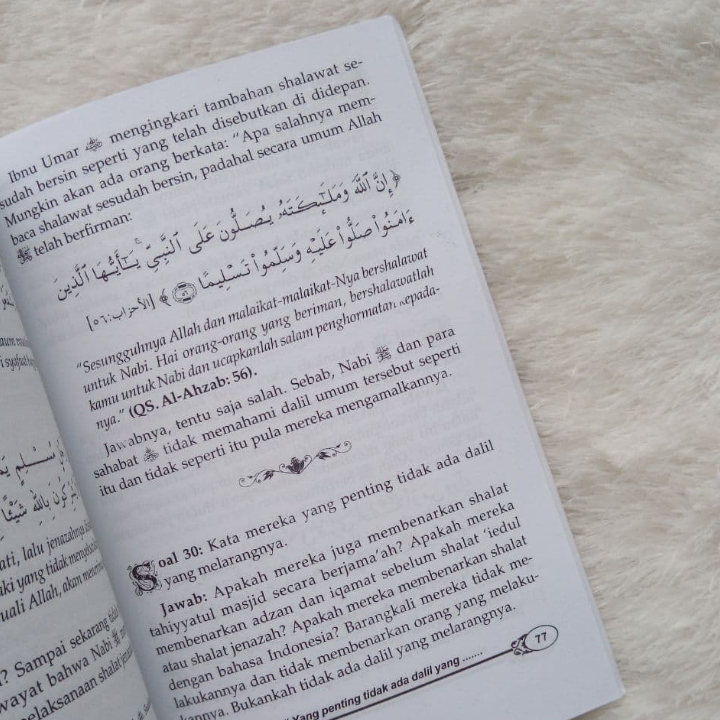 Ibnu Umar mengingkari tambahan shalawat se-
sudah bersin seperti yang telah disebutkan di didepan.
Mungkin akan ada orang berkata: "Apa salahnya mem-
baca shalawat sesudah bersin, padahal secara umum Allah
ﷻ telah berfirman:
﴿ إِنَّ ٱللَّهَ وَمَلَٰٓئِكَتَهُۥ يُصَلُّونَ عَلَى ٱلنَّبِيِّ ۚ يَٰٓأَيُّهَا ٱلَّذِينَ
ءَامَنُوا۟ صَلُّوا۟ عَلَيْهِ وَسَلِّمُوا۟ تَسْلِيمًا ۝٥٦ ﴾ [الأحزاب:٥٦]
"Sesungguhnya Allah dan malaikat-malaikat-Nya bershalawat
untuk Nabi. Hai orang-orang yang beriman, bershalawatlah
kamu untuk Nabi dan ucapkanlah salam penghormatan kepada-
nya." (QS. Al-Ahzab: 56).
Jawabnya, tentu saja salah. Sebab, Nabi ﷺ dan para
sahabat tidak memahami dalil umum tersebut seperti
itu dan tidak seperti itu pula mereka mengamalkannya.
Soal 30: Kata mereka yang penting tidak ada dalil
yang melarangnya.
Jawab: Apakah mereka juga membenarkan shalat
tahiyyatul masjid secara berjama'ah? Apakah mereka
membenarkan adzan dan iqamat sebelum shalat 'iedul
atau shalat jenazah? Apakah mereka membenarkan shalat
dengan bahasa Indonesia? Barangkali mereka tidak me-
lakukannya dan tidak membenarkan orang yang melaku-
kannya. Bukankah tidak ada dalil yang melarangnya.
Yang penting tidak ada dalil yang .......
77